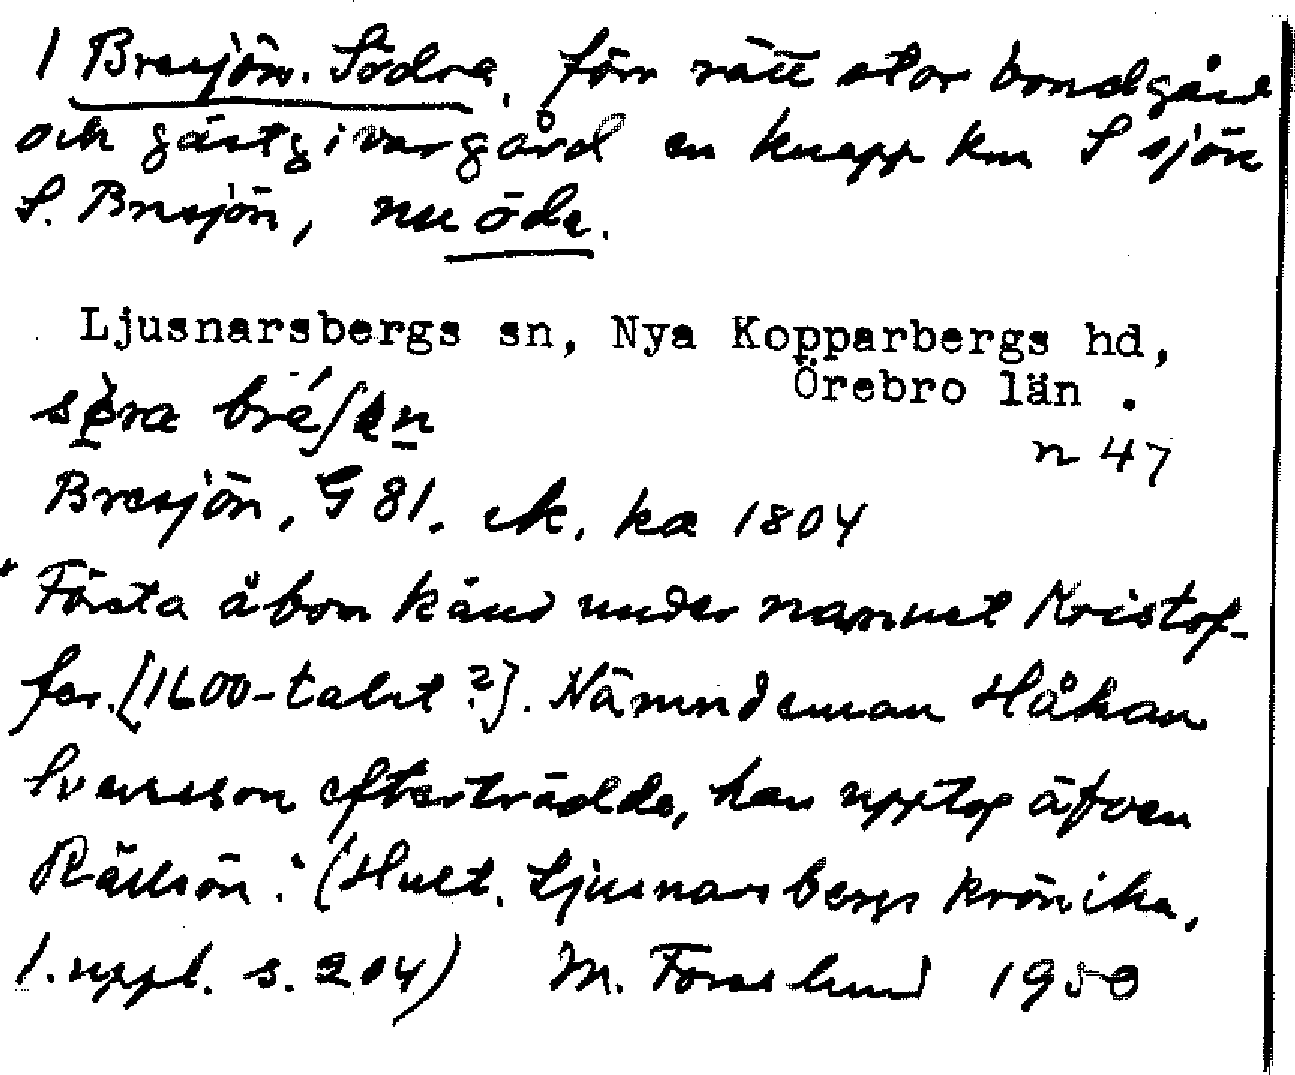 1 Bresjön. Södra, förr rätt stor bondgård
och gästgivargård en knapp km S sjön
S. Bresjön, nu öde.
Ljusnarsbergs sn, Nya Kopparbergs hd,
Örebro län.
bré
n 47
Bresjön, G 81. ek. ka 1804
"Första åbon känd under namnet Kristof-
fer. [1600-talet?]. Nämndeman Håkan
Svensson efterträdde, han upptog äfven
Rällsön." (Hult. Ljusnarsbergs krönika,
1. uppl. s. 204) M. Forslund 1950